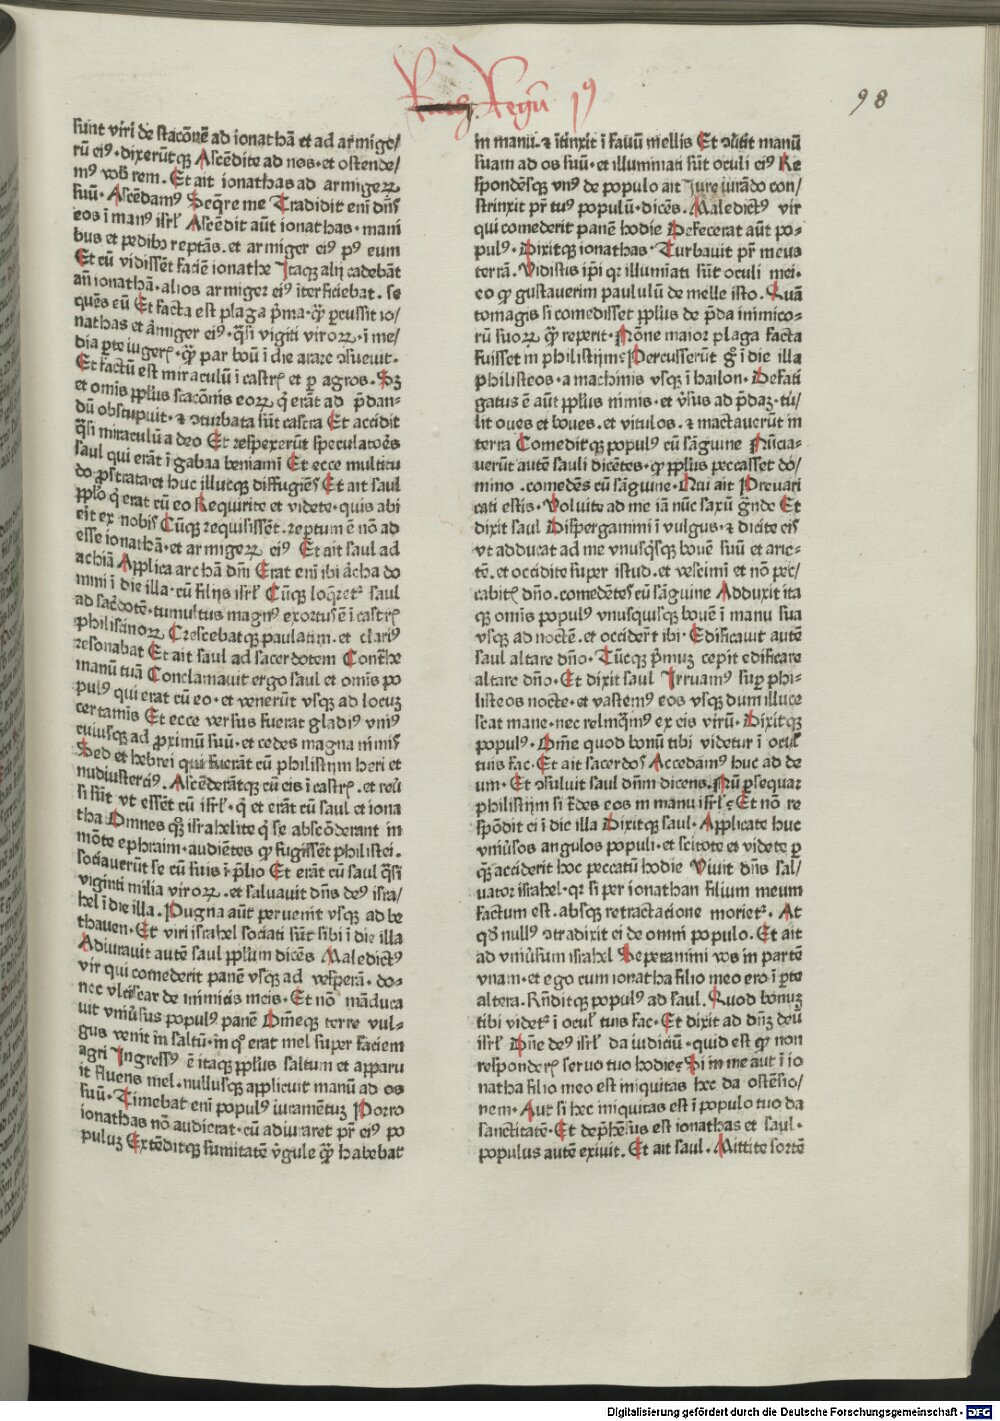 Ruth. Regū 1⁹
98
sunt viri de stacōne ad ionathā et ad armige/
rū ei⁹. dixerūtqꝫ Ascēdite ad nos. et ostende/
m⁹ vob̄ rem. Et ait ionathas ad armigeꝝ
suū. Ascēdam⁹ Seq̄re me Tradidit eni dn̄s
eos ī man⁹ isrl̄ Ascēdit aūt ionathas. mani
bus et pedibꝰ reptās. et armiger ei⁹ p⁹ eum
Et cū vidissēt faciē ionathe Itaqꝫ alij cadebāt
an̄ ionathā. alios armiger ei⁹ īterficiebat. se
quēs eū Et facta est plaga p̄ma. qꝫ̄ ꝑcussit io/
nathas et armiger ei⁹. q̄si vigīti viroꝝ. ī me/
dia ꝑte iugerꝭ. qꝫ̄ par boū ī die arare ↄsueuit.
Et factū est miraculū ī castrꝭ et ꝑ agros. Sꝫ
et omīs ppl̄us stacōnis eoꝝ q̇ erāt ad p̄dan=
dū obstupuit. ⁊ ↄturbata sūt castra Et accidit
q̄si miraculū a deo Et respexerūt speculatores
saul qui erāt ī gabaa beniamī Et ecce multitu
do ꝓstrata. et huc illucqꝫ diffugiēs Et ait saul
ppl̄o q̇ erat cū eo Requirite et videte. quis abi
erit ex nobis Cūqꝫ requisissēt. reptum ē nō ad
esse ionathā. et armigeꝝ ei⁹ Et ait saul ad
achiā Applica archā dn̄i Erat eni ibi archa do
mini ī die illa. cū filijs isrl̄ Cūqꝫ loq̄retᷣ saul
ad sacdotē. tumultus magn⁹ exortus ē ī castrꝭ
philistinoꝝ Crescebatqꝫ paulatim. et clari⁹
resonabat Et ait saul ad sacerdotem Cont̄he
manū tuā Conclamauit ergo saul et omīs po
pul⁹ qui erat cū eo. et venerūt vsqꝫ ad locuꝫ
certamīs Et ecce versus fuerat gladi⁹ vni⁹
cuiusqꝫ ad ꝓximū suū. et cedes magna nimīs
Sed et hebrei qui fuerāt cū philistijm heri et
nudiusterci⁹. Ascēderātqꝫ cū eis ī castrꝭ. et reuͤ
si sūt vt essēt cū isrl̄. q̇ et erāt cū saul et iona
tha Omnes qꝫ̄ israhelite q̇ se abscōderant in
mōte ephraim. audiētes ꝙ fugissēt philistei.
sociauerūt se cū suis ī p̄lio Et erāt cū saul q̄si
viginti milia viroꝝ. et saluauit dn̄s de⁹ isra/
hel ī die illa. Pugna aūt peruenit vsqꝫ ad be
thauen. Et viri israhel sociati sūt sibi ī die illa
Adiurauit autē saul ppl̄um dicēs Maledict⁹
vir qui comederit panē vsqꝫ ad vesperā. do=
nec vlciscar de inimicis meis. Et nō māduca
uit vniūsus popul⁹ panē Om̄eqꝫ terre vul=
gus venit in saltū. in q̇ erat mel super faciem
agri Ingress⁹ ē itaqꝫ ppl̄us saltum et apparu
it fluens mel. nullusqꝫ applicuit manū ad os
suū. Timebat eni popul⁹ iuramētuꝫ Porro
ionathas nō audierat. cū adiuraret pr̄ ei⁹ po
puluꝫ Extēditqꝫ sumitatē v̄gule qꝫ̄ habebat
in manu. ⁊ ītinxit ī fauū mellis Et ↄūtit manū
suam ad os suū. et illuminati sūt oculi ei⁹ Re
spondēsqꝫ vn⁹ de populo ait Iure iurādo con/
strinxit pr̄ tu⁹ populū. dicēs. Maledict⁹ vir
qui comederit panē hodie Defecerat aūt po=
pul⁹. Dixitqꝫ ionathas. Turbauit pr̄ meus
terrā. Vidistis ip̄i qꝛ illuminati sūt oculi mei.
eo ꝙ gustauerim paululū de melle isto. Quā
tomagis si comedisset ppl̄us de p̄da inimico=
rū suoꝝ qꝫ̄ reperit. Nōne maior plaga facta
fuisset in philistijm? Percusserūt gͦ ī die illa
philisteos. a machinis vsqꝫ ī hailon. Defati
gatus ē aūt ppl̄us nimis. et v̄sus ad p̄daꝫ. tu/
lit oues et boues. et vitulos. ⁊ mactauerūt in
terra Comeditqꝫ popul⁹ cū sāguine Nūcia=
uerūt autē sauli dicētes. ꝙ ppl̄us peccasset do/
mino. comedēs cū sāguine. Qui ait Preuari
cati estis. Voluite ad me iā nūc saxū grāde Et
dixit saul Dispergamini ī vulgus. ⁊ dicite eis
vt adducat ad me vnusq̇sqꝫ bouē suū et arie=
tē. et occidite super istud. et vescimī et nō pec/
cabitꝭ dn̄o. comedētes cū sāguine Adduxit ita
qꝫ omīs popul⁹ vnusquisqꝫ bouē ī manu sua
vsqꝫ ad noctē. et occiderūt ibi. Edificauit autē
saul altare dn̄o. Tūcqꝫ p̄muꝫ cepit edificare
altare dn̄o. Et dixit saul Irruam⁹ suꝑ phi=
listeos nocte. et vastem⁹ eos vsqꝫ dum illuce
scat mane. nec relinq̄m⁹ ex eis virū. Dixitqꝫ
popul⁹. Om̄e quod bonū tibi videtur ī ocul̄
tuis fac. Et ait sacerdos Accedam⁹ huc ad de
um. Et ↄsuluit saul dn̄m dicens. Nū ꝑsequar
philistijm si trādes eos in manu isrl̄? Et nō re
spōdit ei ī die illa Dixitqꝫ saul. Applicate huc
vniūsos angulos populi. et scitote et videte ꝑ
qꝫ̄ acciderit hoc peccatū hodie Viuit dn̄s sal/
uator israhel. qꝛ si per ionathan filium meum
factum est. absqꝫ retractacione morietᷣ. At
qd̄ null⁹ ↄtradixit ei de omni populo. Et ait
ad vniūsum israhel Seperamini vos in partē
vnam. et ego cum ionatha filio meo ero ī ꝑte
altera. Rn̄ditqꝫ popul⁹ ad saul. Quod bonuꝫ
tibi videtᷣ ī ocul̄ tuis fac. Et dixit ad dn̄ꝫ deū
isrl̄ Dn̄e de⁹ isrl̄ da iudiciū. quid est ꝙ non
responderꝭ seruo tuo hodie? Si in me aut ī io
natha filio meo est iniquitas hec da ostēsio/
nem. Aut si hec iniquitas est ī populo tuo da
sanctitatē. Et dep̄hēsus est ionathas et saul.
populus autē exiuit. Et ait saul. Mittite sortē
Digitalisierung gefördert durch die Deutsche Forschungsgemeinschaft - DFG